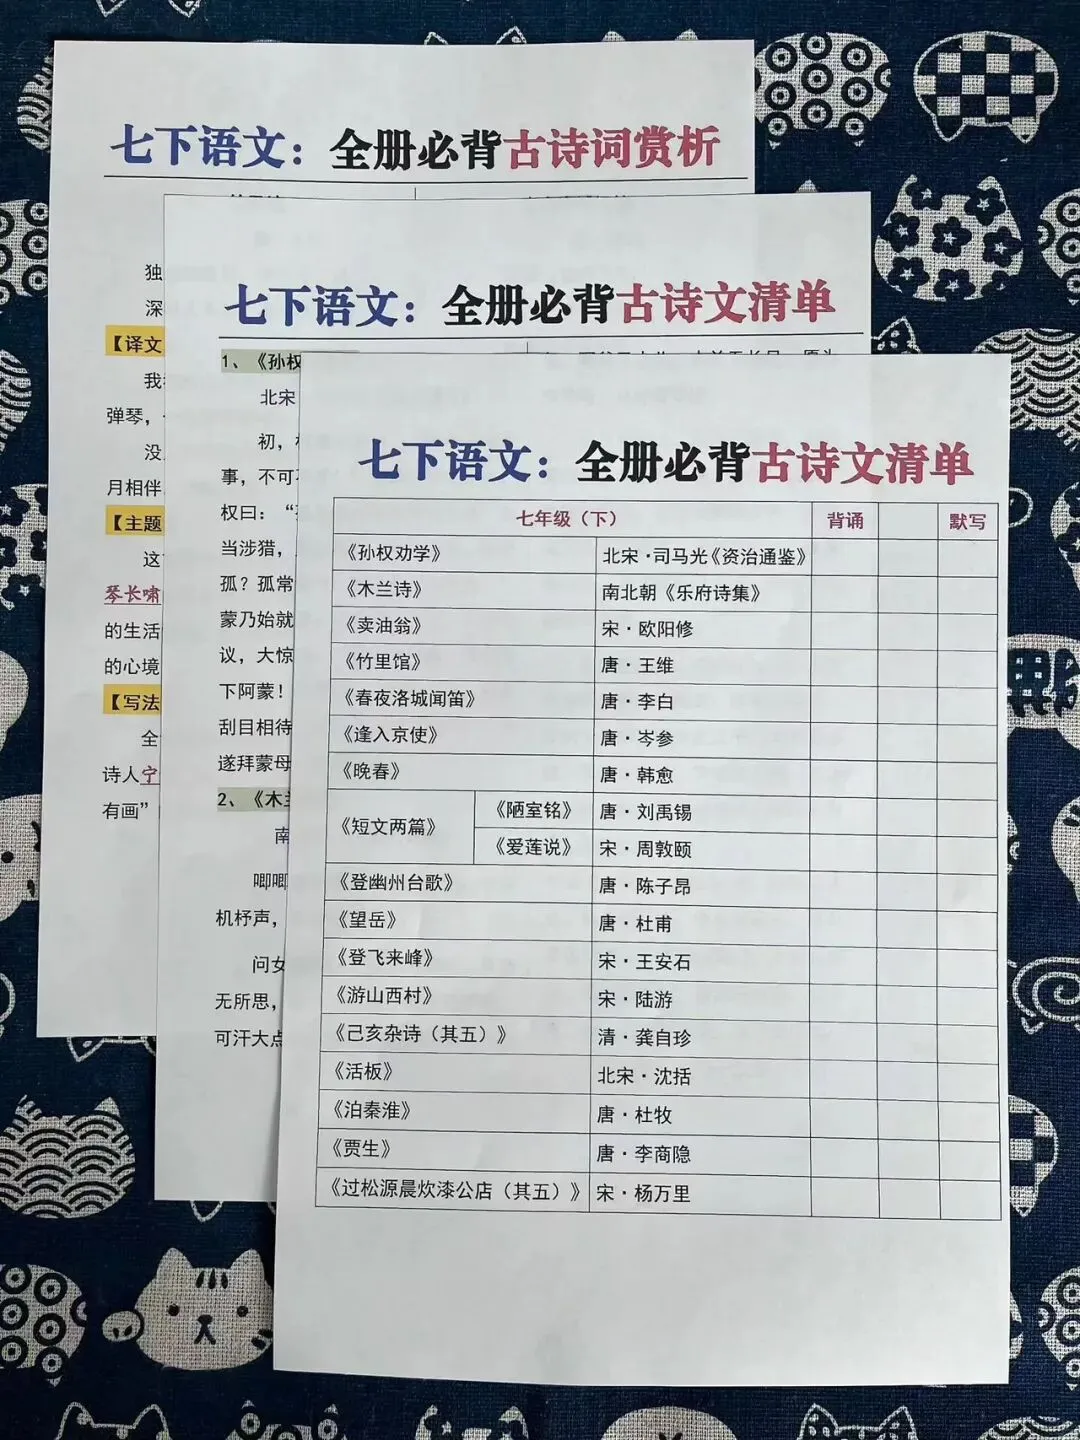 七下语文：全册必背古诗词赏析
独
深
【译文
我
弹琴，
没
月相伴
【主题
这
琴长啸
的生活
的心境
【写法
全
诗人宁
有画”
七下语文：全册必背古诗文清单
1、《孙权
北宋
初，
事，不可
权曰：“
当涉猎，
孤？孤常
蒙乃始就
议，大惊
下阿蒙！
刮目相待
遂拜蒙母
2、《木兰
南
唧唧
机杼声，
问女
无所思，
可汗大点
七下语文：全册必背古诗文清单
七年级（下） 背诵 默写
《孙权劝学》 北宋·司马光《资治通鉴》
《木兰诗》 南北朝《乐府诗集》
《卖油翁》 宋·欧阳修
《竹里馆》 唐·王维
《春夜洛城闻笛》 唐·李白
《逢入京使》 唐·岑参
《晚春》 唐·韩愈
《短文两篇》 《陋室铭》 唐·刘禹锡
《爱莲说》 宋·周敦颐
《登幽州台歌》 唐·陈子昂
《望岳》 唐·杜甫
《登飞来峰》 宋·王安石
《游山西村》 宋·陆游
《己亥杂诗（其五）》 清·龚自珍
《活板》 北宋·沈括
《泊秦淮》 唐·杜牧
《贾生》 唐·李商隐
《过松源晨炊漆公店（其五）》 宋·杨万里